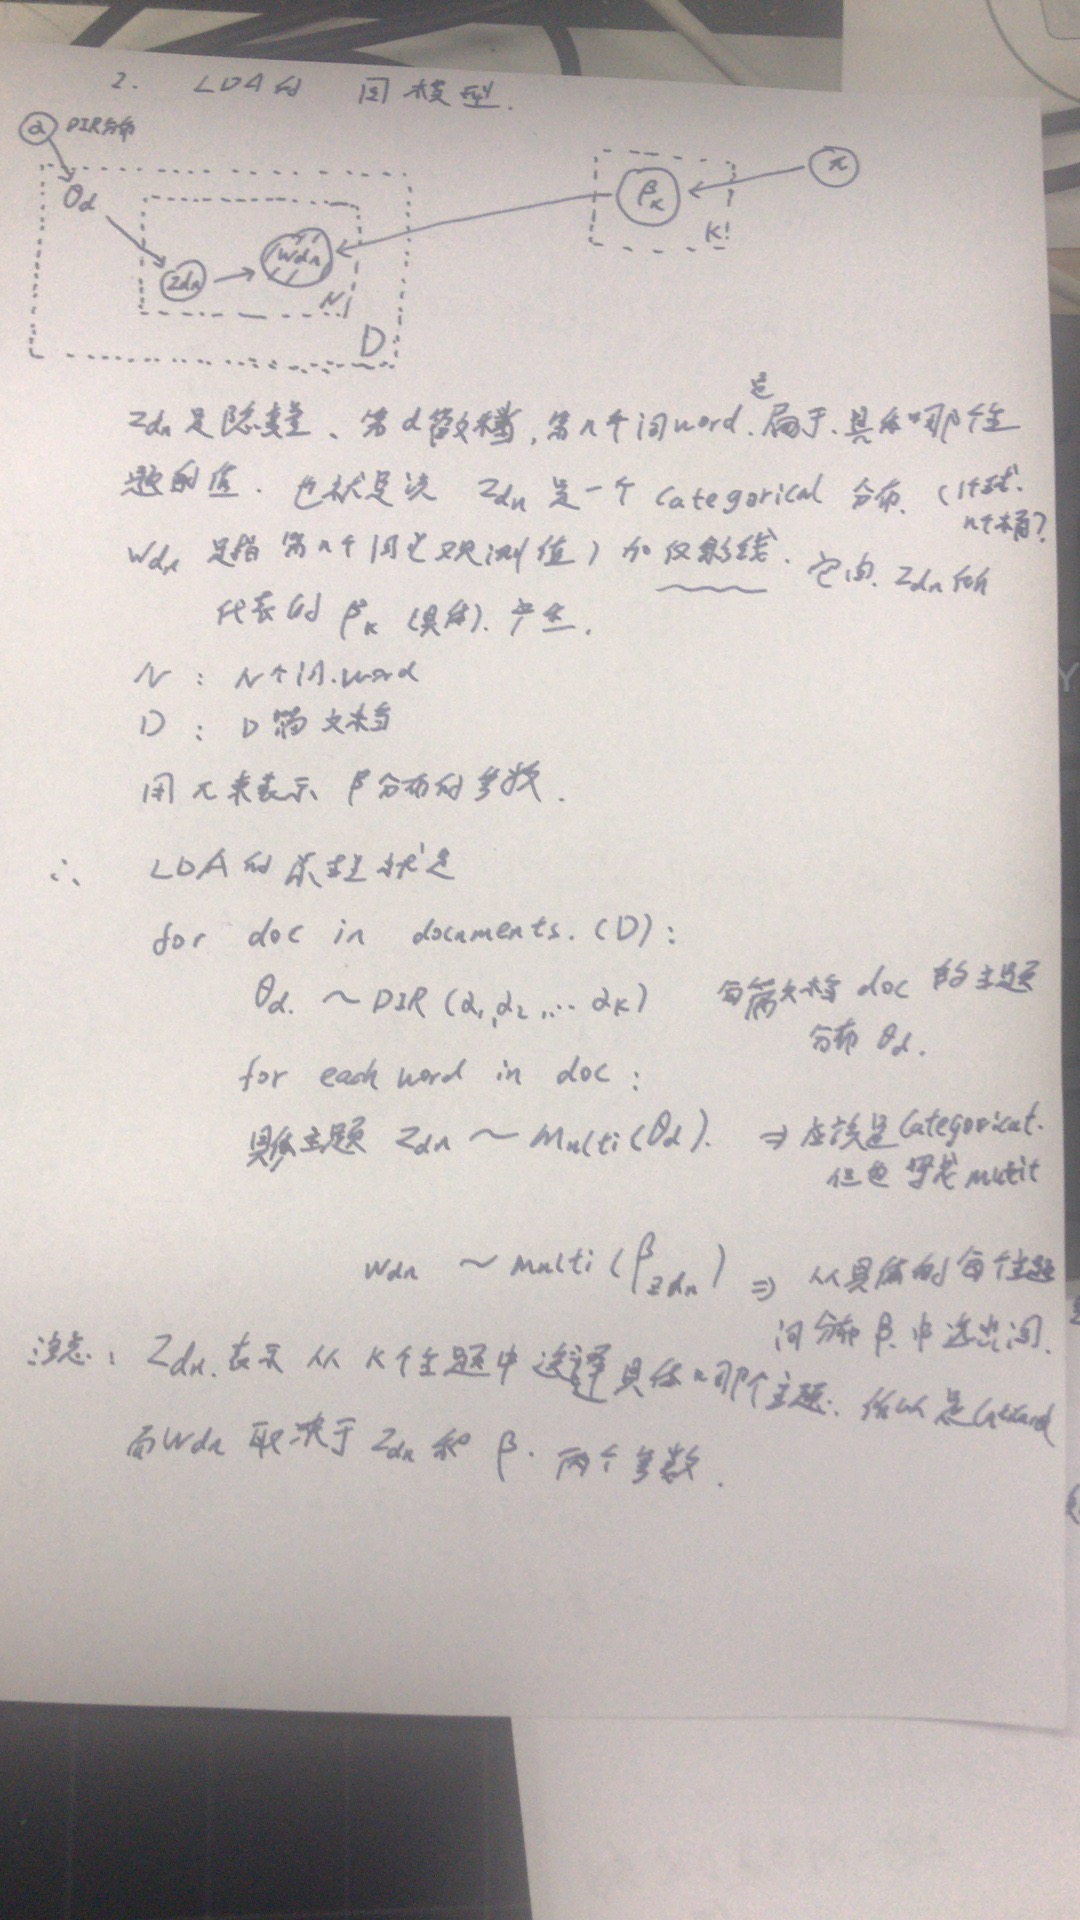 2. LDA的 图模型.
α DIR分布
θd
Zdn
Wdn
N
D
βK
K
π
Zdn 是隐变量、第d篇文档,第n个词word.是属于.具体哪个主
题的值. 也就是说 Zdn 是一个 Categorical 分布. (1个球.
n个桶?
Wdn 是指 第n个词是观测值) 加 线. 它由. Zdn 所
代表的 βK (具体). 产生.
N : N个词.word
D : D篇文档
用π来表示 β分布的参数.
∴ LDA的原理就是
for doc in documents. (D) :
θd. ~ DIR (α1,α2,... αK) 每篇文档 doc 的主题
分布 θd.
for each word in doc :
具体主题 Zdn ~ Multi(θd). ⇒ 应该是Categorical.
但也 写成 mutit
Wdn ~ Multi (βZdn) ⇒ 从具体的每个主题
词分布 β.中选出词.
注意: Zdn.表示 从 K个主题中选择具体哪个主题. 所以是
而Wdn 取决于 Zdn 和 β. 两个参数.